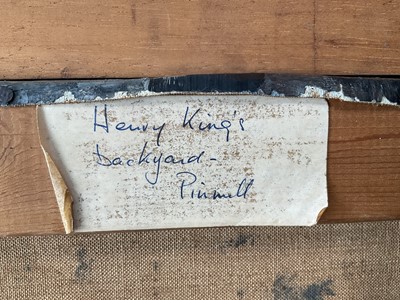 Henry King's
backyard-
Pinmill